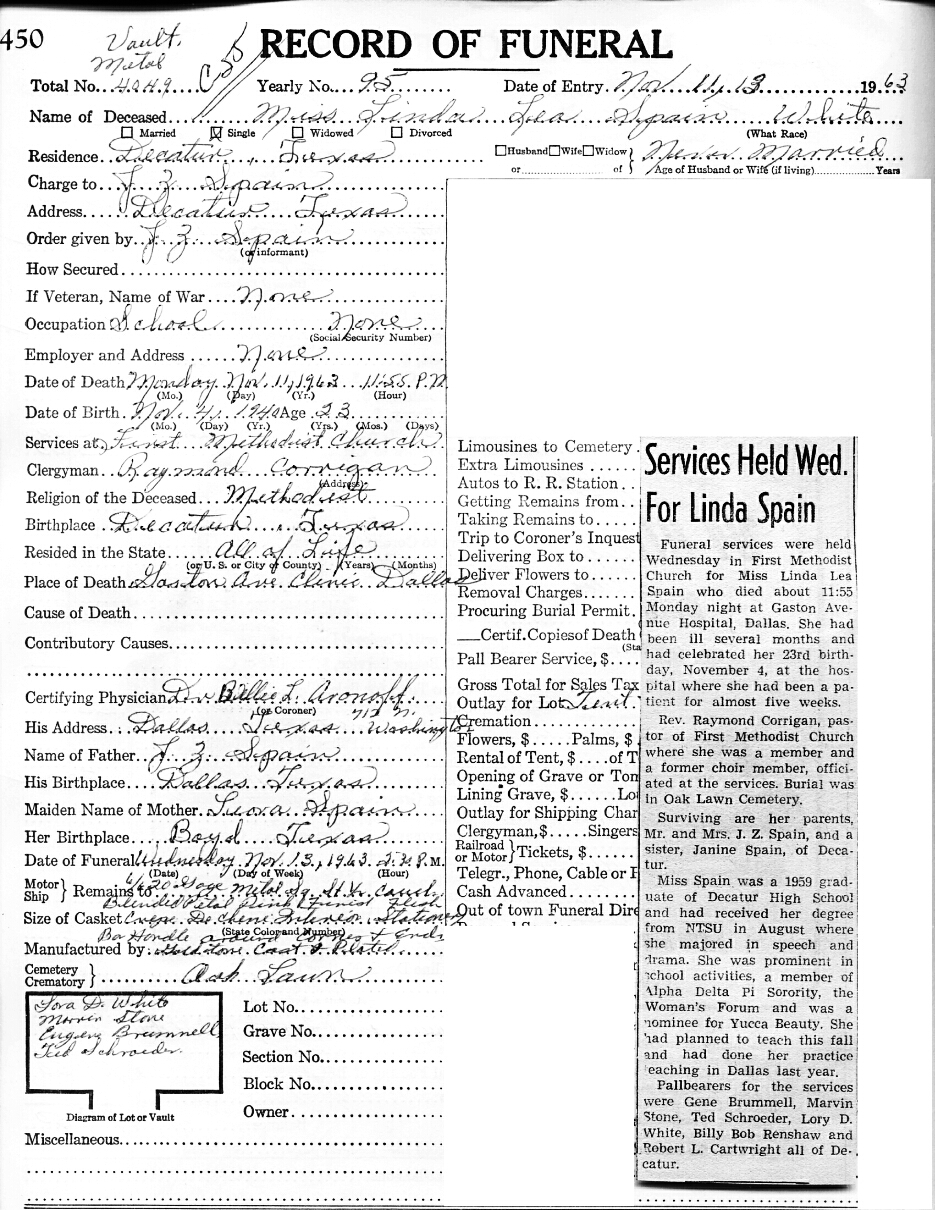 450
Vault,
Metal
RECORD OF FUNERAL
Total No. 4049 Yearly No. 95 Date of Entry. Nov. 11, 13 1963
Name of Deceased Miss Linda Lea Spain White
Married Single Widowed Divorced (What Race)
Residence Decatur, Texas Husband Wife Widow } Never Married
or of Age of Husband or Wife (if living) Years
Charge to J. Z. Spain
Address Decatur Texas
Order given by J. Z. Spain
(or informant)
How Secured
If Veteran, Name of War None
Occupation School None
(Social Security Number)
Employer and Address None
Date of Death Monday Nov. 11, 1963 11:55 P.M
(Mo.) (Day) (Yr.) (Hour)
Date of Birth Nov. 4, 1940 Age 23
(Mo.) (Day) (Yr.) (Yrs.) (Mos.) (Days)
Services at First Methodist Church
Clergyman Raymond Corrigan
(Address)
Religion of the Deceased Methodist
Birthplace Decatur, Texas
Resided in the State All of Life
(or U. S. or City of County) (Years) (Months)
Place of Death Gaston Ave. Clinic Dallas
Cause of Death
Contributory Causes
Certifying Physician Dr Billie L. Aronoff
(or Coroner)
His Address Dallas Texas 712 N. Washington
Name of Father J. Z. Spain
His Birthplace Dallas Texas
Maiden Name of Mother Leora Spain
Her Birthplace Boyd Texas
Date of Funeral Wednesday Nov. 13, 1963 P.M.
(Date) (Day of Week) (Hour)
Motor
Ship } Remains to 20 Gage Metal
Blended Petal Pink Finest
Size of Casket Crepe De chene Interior Stationary
(State Color and Number)
Bar Handle around Corner & Ends
Manufactured by
Cemetery
Crematory } Oak Lawn
Lora D. White
Marvin Stone
Eugene Brummell
Ted Schroeder
Diagram of Lot or Vault
Lot No.
Grave No.
Section No.
Block No.
Owner
Miscellaneous
Limousines to Cemetery
Extra Limousines
Autos to R. R. Station
Getting Remains from
Taking Remains to
Trip to Coroner's Inquest
Delivering Box to
Deliver Flowers to
Removal Charges
Procuring Burial Permit
Certif. Copies of Death
(Sta
Pall Bearer Service, $
Gross Total for Sales Tax
Outlay for Lot Tent
Cremation
Flowers, $ Palms, $
Rental of Tent, $ of T
Opening of Grave or Tom
Lining Grave, $ Lo
Outlay for Shipping Char
Clergyman, $ Singers
Railroad
or Motor } Tickets, $
Telegr., Phone, Cable or
Cash Advanced
Out of town Funeral Dire
Services Held Wed.
For Linda Spain
Funeral services were held
Wednesday in First Methodist
Church for Miss Linda Lea
Spain who died about 11:55
Monday night at Gaston Ave-
nue Hospital, Dallas. She had
been ill several months and
had celebrated her 23rd birth-
day, November 4, at the hos-
pital where she had been a pa-
tient for almost five weeks.
Rev. Raymond Corrigan, pas-
tor of First Methodist Church
where she was a member and
a former choir member, offici-
ated at the services. Burial was
in Oak Lawn Cemetery.
Surviving are her parents,
Mr. and Mrs. J. Z. Spain, and a
sister, Janine Spain, of Deca-
tur.
Miss Spain was a 1959 grad-
uate of Decatur High School
and had received her degree
from NTSU in August where
she majored in speech and
drama. She was prominent in
school activities, a member of
Alpha Delta Pi Sorority, the
Woman's Forum and was a
nominee for Yucca Beauty. She
had planned to teach this fall
and had done her practice
teaching in Dallas last year.
Pallbearers for the services
were Gene Brummell, Marvin
Stone, Ted Schroeder, Lory D.
White, Billy Bob Renshaw and
Robert L. Cartwright all of De-
catur.